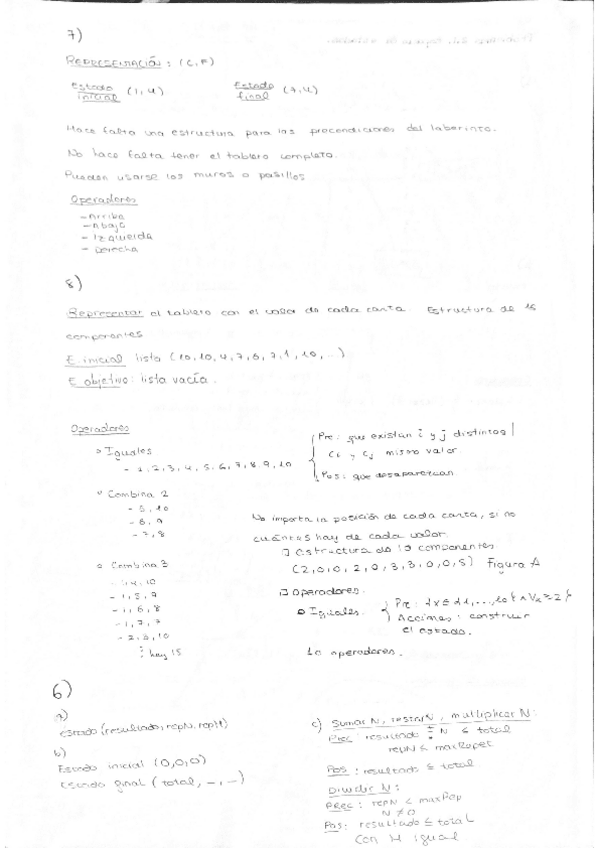 7)
REPRESENTACIÓN : (C, F)
Estado inicial (1,4) Estado final (7,4)
Hace falta una estructura para las precondiciones del laberinto.
No hace falta tener el tablero completo.
Pueden usarse los muros o pasillos
Operadores
- Arriba
- Abajo
- Izquierda
- Derecha
8)
Representar el tablero con el valor de cada carta. Estructura de 16
componentes
E. inicial lista (10,10,4,7,6,7,1,10,...)
E. objetivo: lista vacía.
Operadores
Iguales
- 1,2,3,4,5,6,7,8,9,10
Pre: que existan i y j distintos |
Ci y Cj mismo valor.
Pos: que desaparezcan.
Combina 2
- 5,10
- 6,9
- 7,8
Combina 3
- 1,5,9
- 1,6,8
- 1,7,7
- 2,3,10
hay 15
No importa la posición de cada carta, si no
cuántas hay de cada valor.
estructura de 10 componentes.
(2,0,0,2,0,3,3,0,0,5) Figura A
Operadores.
Iguales.
Acciones: construir
el estado.
10 operadores.
6)
a)
estado (resultado, repN, repM)
b)
Estado inicial (0,0,0)
Estado final (total, -, -)
c) Sumar N, restar N, multiplicar N:
Prec: resultado N ≤ total
repN ≤ maxRepet
Pos: resultado ≤ total
Dividir N:
Prec: repN < maxRep
N ≠ 0
Pos: resultado ≤ total
con M igual